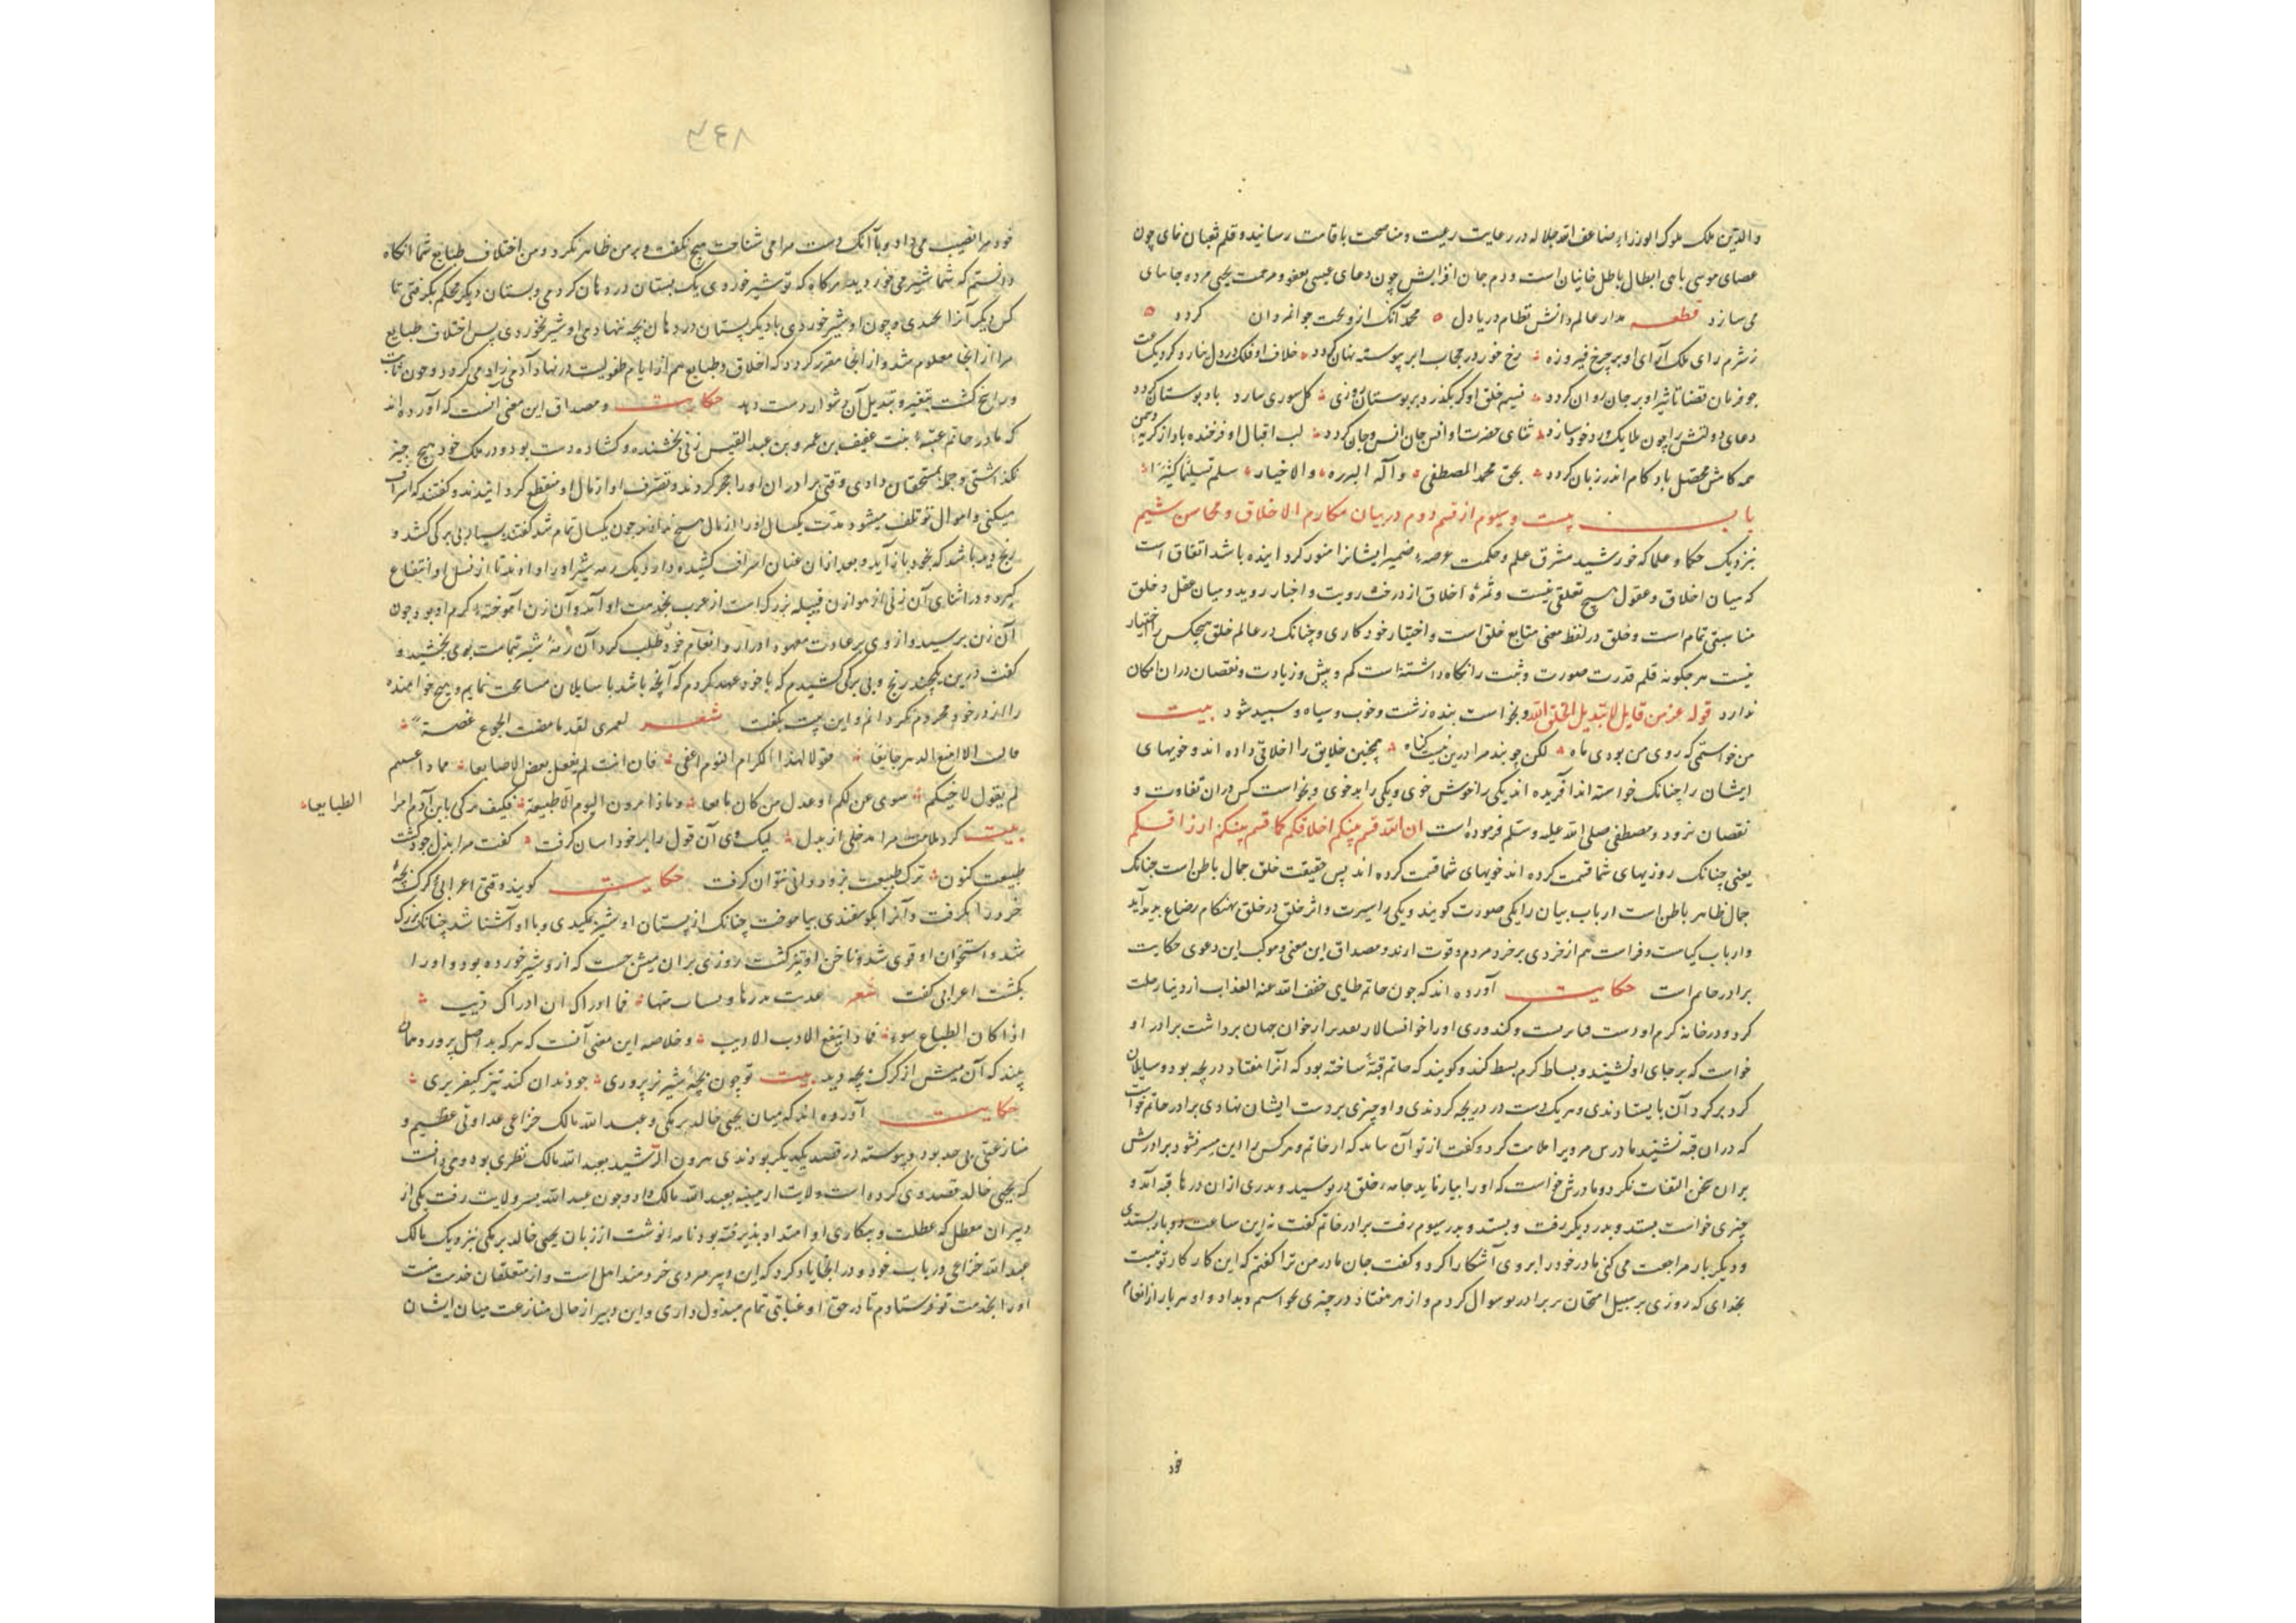 والدین ملک ملوک الوزراء ضاعف الله جلاله در رعایت رعیت و مناصحت باقامت رسانید و قلم ثعبان نمای چون
عصای موسی باحی ابطال باطل خانیان است و دم جان افزایش چون دعای عیسی بعفو و مرحمت یحیی مرده جانهای
می سازد قطعه مدار عالم دانش نظام دریادل محمد آنک از و بخت جوانمردان کردد
ز شرم رای ملک آرای او بر چرخ فیروزه رخ خور در حجاب ابر پیوسته نهان کردد خلاف او فلک در دل نیارد کرد یکساعت
چو فرمان قضا تاثیر او بر جان روان کردد نسیم خلق او کر بکذرد بر بوستان روزی کل سوری باد بوستان کردد
دعای دولتش را چون ملایک ورد خود سازد ثنای حضرت او انس جان انس و جان کردد لب اقبال او فرخنده باد از کریه دشمن
همه کامش محصل باد کام اندر زبان کردد بحق محمد المصطفی و آله البرره والاخیار سلم تسلیما کثیرا
باب بیست و سیوم از قسم دوم در بیان مکارم الاخلاق و محاسن شیم
بنزدیک حکما و علما که خورشید مشرق علم و حکمت عرصه ضمیر ایشانرا منور کردانیده باشد اتفاق است
که میان اخلاق و عقول هیچ تعلقی نیست و ثمره اخلاق از درخت رویت و اخبار روید و میان عقل و خلق
مناسبتی تمام است و خلق در لفظ معنی متابع خلق است و اختیار خود کاری و چنانک در عالم خلق هیچکس را اختیار
نیست هر چکونه قلم قدرت صورت و ثبت را نکاه داشته است کم و بیش و زیادت و نقصان دران امکان
ندارد قوله عز من قایل لا تبدیل لخلق الله و بخواست بنده زشت و خوب و سیاه و سپید شود بیت
من خواستمی که روی من بودی ماه لکن چو بند مرا درین نیست کناه همچنین خلایق را اخلاقی داده اند و خویهای
ایشان را چنانک خواسته اند آفریده اند یکی را خوش خوی و یکی را بدخوی و بخواست کس دران تفاوت و
نقصان نرود و مصطفی صلی الله علیه و سلم فرموده است ان الله قسم بینکم اخلاقکم کما قسم بینکم ارزاقکم
یعنی چنانک روزیهای شما قسمت کرده اند خویهای شما قسمت کرده اند پس حقیقت خلق جمال باطن است چنانک
جمال ظاهر باطن است ارباب بیان را یکی صورت کویند و یکی را سیرت و اثر خلق در خلق بهنکام رضاع پدید آید
و ارباب کیاست و فراست هم از خردی بر خرد مردم وقوف ارند و مصداق این معنی و موکد این دعوی حکایت
برادر حاتم است حکایت آورده اند که چون حاتم طایی خفف الله عنه العذاب از دنیا رحلت
کرد و در خانه کرم او دست و کندوری او را خوانسالار بعد بر ار خوان جهان برداشت برادر او
خواست که بر جای او نشیند و بساط کرم بسط کند و کویند که حاتم قبهٔ ساخته بود که آنرا هفتاد دریچه بود و سایلان
کرد بر کرد آن بایستاوندی و هر یک دست در دریچه کردندی و او چیزی بر دست ایشان نهادی برادر حاتم خواست
که دران قبه نشیند مادرش مرو یرا ملامت کرد و کفت از تو آن نیاید که از حاتم و هر کس را این میسر نشود برادرش
بران سخن التفات نکرد و مادرش خواست که او را بیازماید جامهٔ خلق در پوسید و بدری ازان درهای قبه آمد و
چیزی خواست بستد و بدر دیکر رفت و بستد و بدر سیوم رفت برادر حاتم کفت نه این ساعت دوبار بستدی
و دیکر بار مراجعت می کنی مادر خود را بروی آشکارا کرد و کفت جان مادر من ترا کفتم که این کار کار تو نیست
بخدای که روزی بر سبیل امتحان بر برادر تو سوال کردم و از هر هفتاد در چیزی بخواستم و بداد و او هر بار از انعام
خود
خود مرا نصیب می داد و با آنک دست مرا می شناخت هیچ نکفت و بر من ظاهر نکرد و من اختلاف طبایع شما انکاه
دانستم که شما شیر می خوردید هرکاه که تو شیر خوردی یک پستان در دهان کردی و پستان دیکر محکم بکرفتی تا
کس دیکر آنرا نمکدی و چون او شیر خوردی تا دیکر پستان در دهان بچه ننهادی او شیر نخوردی پس اختلاف طبایع
مرا از انجا معلوم شد و از انجا مقرر کردد که اخلاق و طبایع هم از ایام طفولیت در نهاد آدمی زاد می کردد و چون ثابت
و راسخ کشت تغییر و تبدیل آن دشوار دست دهد حکایت و مصداق این معنی آنست که آورده اند
که مادر حاتم عتبه بنت عفیف بن عمرو بن عبد القیس زنی بخشنده و کشاده دست بود و در ملک خود هیچ چیز
نکذاشتی و جمله بمستحقان دادی وقتی برادران او را حجر کردند و تصرف او از مال او منقطع کردانیدند و کفتند که اسراف
میکنی و اموال تو تلف میشود مدت یکسال او را از مال هیچ ندادند چون یکسال تمام شد کفتند بسیار بی برکی کشید و
رنج دید باشد که بخود باز آید و بعد ازان عنان اسراف کشیده دارد یک رمه شیر اور او را دادند تا از نسل او انتفاع
کیرد و در اثنای آن زنی از هوازن قبیله بزرک است از عرب بخدمت او آمد و آن زن آموخته کرم او بود چون
آن زن برسید و از وی بر عادت معهود ادرار و انعام خود طلب کرد آن رمهٔ شیر بتمامت بوی بخشید و
کفت درین یکچند رنج و بی برکی کشیدم که با خود عهد کردم که آنچه باشد با سایلان مسامحت نمایم و هیچ خواهنده
را از در خود محروم نکردانم و این بیت بکفت شعر لعمری لقد ما مضت الجوع غصة
مالت الا امنع الدهر جایعا فقولا لهذا الکرام النوم اعفی فان انت لم یفعل بعض الاصابعا مما ذا عسیتم
لم یقول لاخیکم سوی عن لکم او عدل من کان مانعا و ماذا مرون الیوم الا طبیعة فکیف ترکی باابن آدم امرا
الطبایعا
بیت کرد ملامت مرا مدخلی از بدل لیک وی آن قول را بر خود اسان کرفت کفت مرا بذل جود کشت
طبیعت کنون ترک طبیعت بزور دانی نتوان کرفت حکایت کویند وقتی اعرابی کرک بچهٔ
خرد را بکرفت و آنرا بکوسفندی بیاموخت چنانک از پستان او شیر مکیدی و با او آشنا شد چنانک بزرک
شد و استخوان او قوی شد و ناخن او تیز کشت روزی بران میش جست که از و شیر خورده بود و او را
بکشت اعرابی کفت شعر غذیت بدرها و بساب منها فما ادراک ان اباک ذیب
اذا کان الطباع سوء فماذا ینفع الادب الادیب و خلاصه این معنی آنست که هر که بد اصل پرورد همان
بیند که آن میش از کرک بچه دید بیت تو چون بچهٔ شیر نر پروری چو دندان کند تیز کیفر بری
حکایت آورده اند که میان یحیی خالد برمکی و عبد الله مالک خزاعی عداوتی عظیم و
منازعتی بی حد بود و پیوسته در قصد یکدیکر بودندی هرون الرشید بعبد الله مالک نظری بود و می دانست
که یحیی خالد قصد وی کرده است ولایت ارمینیه بعبد الله مالک داد و چون عبد الله بسر ولایت رفت یکی از
دبیران معطل که عطلت و بیکاری او امتداد پذیرفته بود نامه انوشت از زبان یحیی خالد برمکی بنزدیک مالک
عبد الله خزاعی در باب خود و در انجا یاد کرد که این دبیر مردی خردمند اهل است و از متعلقان خدمت منست
او را بخدمت تو فرستادم تا در حق او عنایتی تمام مبذول داری و این دبیر از حال منازعت میان ایشان